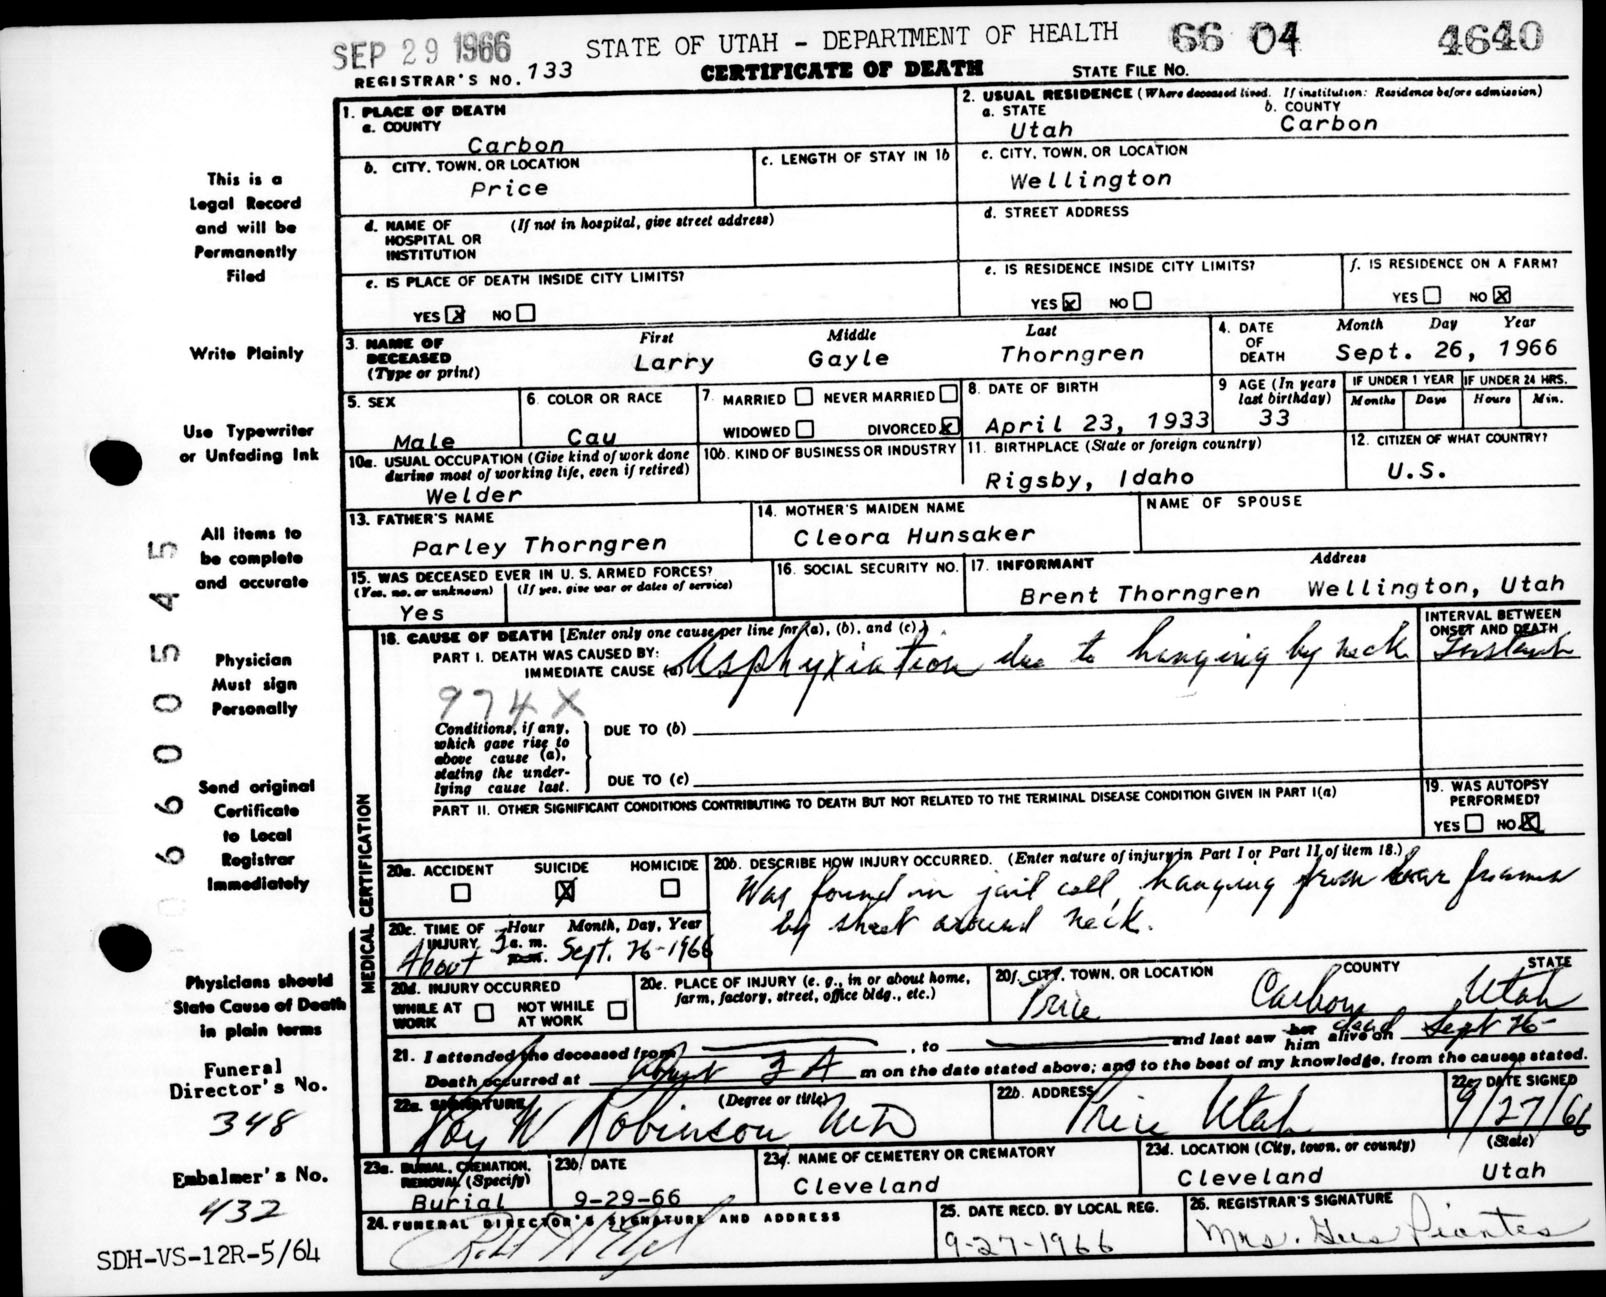 SEP 29 1966 STATE OF UTAH - DEPARTMENT OF HEALTH 66 04 4640
REGISTRAR'S NO. 133 CERTIFICATE OF DEATH STATE FILE NO.
This is a
Legal Record
and will be
Permanently
Filed
Write Plainly
Use Typewriter
or Unfading Ink
All items to
be complete
and accurate
Physician
Must sign
Personally
Send original
Certificate
to Local
Registrar
Immediately
Physicians should
State Cause of Death
in plain terms
Funeral
Director's No.
348
Embalmer's No.
432
SDH-VS-12R-5/64
06600545
1. PLACE OF DEATH
a. COUNTY
Carbon
2. USUAL RESIDENCE (Where deceased lived. If institution: Residence before admission)
a. STATE b. COUNTY
Utah Carbon
b. CITY, TOWN, OR LOCATION
Price
c. LENGTH OF STAY IN 1b
c. CITY, TOWN, OR LOCATION
Wellington
d. NAME OF (If not in hospital, give street address)
HOSPITAL OR
INSTITUTION
d. STREET ADDRESS
e. IS PLACE OF DEATH INSIDE CITY LIMITS?
YES X NO
e. IS RESIDENCE INSIDE CITY LIMITS?
YES X NO
f. IS RESIDENCE ON A FARM?
YES NO X
3. NAME OF DECEASED (Type or print)
First Middle Last
Larry Gayle Thorngren
4. DATE OF DEATH
Month Day Year
Sept. 26, 1966
5. SEX
Male
6. COLOR OR RACE
Cau
7. MARRIED NEVER MARRIED
WIDOWED DIVORCED X
8. DATE OF BIRTH
April 23, 1933
9 AGE (In years last birthday)
33
IF UNDER 1 YEAR IF UNDER 24 HRS.
Months Days Hours Min.
10a. USUAL OCCUPATION (Give kind of work done
during most of working life, even if retired)
Welder
10b. KIND OF BUSINESS OR INDUSTRY
11. BIRTHPLACE (State or foreign country)
Rigsby, Idaho
12. CITIZEN OF WHAT COUNTRY?
U.S.
13. FATHER'S NAME
Parley Thorngren
14. MOTHER'S MAIDEN NAME
Cleora Hunsaker
NAME OF SPOUSE
15. WAS DECEASED EVER IN U. S. ARMED FORCES?
(Yes, no, or unknown) (If yes, give war or dates of service)
Yes
16. SOCIAL SECURITY NO.
17. INFORMANT Address
Brent Thorngren Wellington, Utah
MEDICAL CERTIFICATION
18. CAUSE OF DEATH [Enter only one cause per line for (a), (b), and (c).]
PART I. DEATH WAS CAUSED BY:
IMMEDIATE CAUSE (a) Asphyxiation due to hanging by neck
INTERVAL BETWEEN
ONSET AND DEATH
Instant
974X
Conditions, if any,
which gave rise to
above cause (a),
stating the under-
lying cause last.
DUE TO (b)
DUE TO (c)
PART II. OTHER SIGNIFICANT CONDITIONS CONTRIBUTING TO DEATH BUT NOT RELATED TO THE TERMINAL DISEASE CONDITION GIVEN IN PART I(a)
19. WAS AUTOPSY
PERFORMED?
YES NO X
20a. ACCIDENT SUICIDE HOMICIDE
X
20b. DESCRIBE HOW INJURY OCCURRED. (Enter nature of injury in Part I or Part II of item 18.)
Was found in jail cell, hanging from bar frames
by sheet around neck.
20c. TIME OF INJURY Hour Month, Day, Year
About 3 a. m. p.m. Sept. 26-1966
20d. INJURY OCCURRED
WHILE AT WORK NOT WHILE AT WORK
20e. PLACE OF INJURY (e. g., in or about home,
farm, factory, street, office bldg., etc.)
20f. CITY, TOWN, OR LOCATION COUNTY STATE
Price Carbon Utah
21. I attended the deceased from , to and last saw her him alive on dead Sept 26-
Death occurred at About 3 A m on the date stated above; and to the best of my knowledge, from the causes stated.
22a. SIGNATURE (Degree or title)
Roy W Robinson MD
22b. ADDRESS
Price Utah
22c. DATE SIGNED
9/27/66
23a. BURIAL, CREMATION,
REMOVAL (Specify)
Burial
23b. DATE
9-29-66
23c. NAME OF CEMETERY OR CREMATORY
Cleveland
23d. LOCATION (City, town, or county) (State)
Cleveland Utah
24. FUNERAL DIRECTOR'S SIGNATURE AND ADDRESS
25. DATE RECD. BY LOCAL REG.
9-27-1966
26. REGISTRAR'S SIGNATURE
Mrs. Gus Piantes